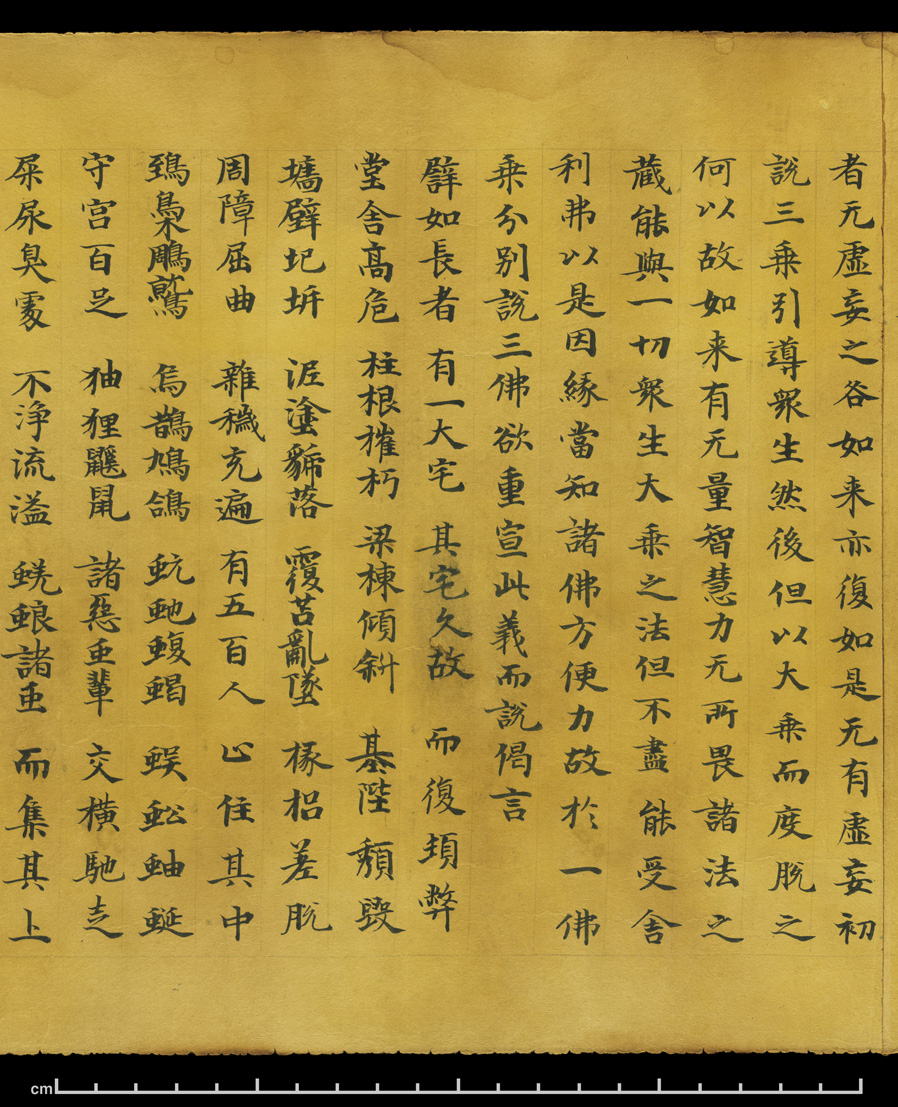 者无虛妄之咎如来亦復如是无有虛妄初
說三乗引導衆生然後但以大乗而度脫之
何以故如来有无量智慧力无所畏諸法之
藏能與一切衆生大乗之法但不盡能受舍
利弗以是因緣當知諸佛方便力故於一佛
乗分别說三佛欲重宣此義而說偈言
譬如長者 有一大宅 其宅久故 而復頓弊
堂舍高危 柱根摧朽 梁棟傾斜 基陛頹毀
墻壁圮坼 泥塗褫落 覆苫亂墜 椽梠差脫
周障屈曲 雜穢充遍 有五百人 止住其中
鵄梟鵰鷲 烏鵲鳩鴿 蚖虵蝮蝎 蜈蚣蚰蜒
守宮百足 狖狸鼷鼠 諸惡䖝輩 交橫馳走
屎尿臭䖏 不淨流溢 蜣蜋諸䖝 而集其上
cm